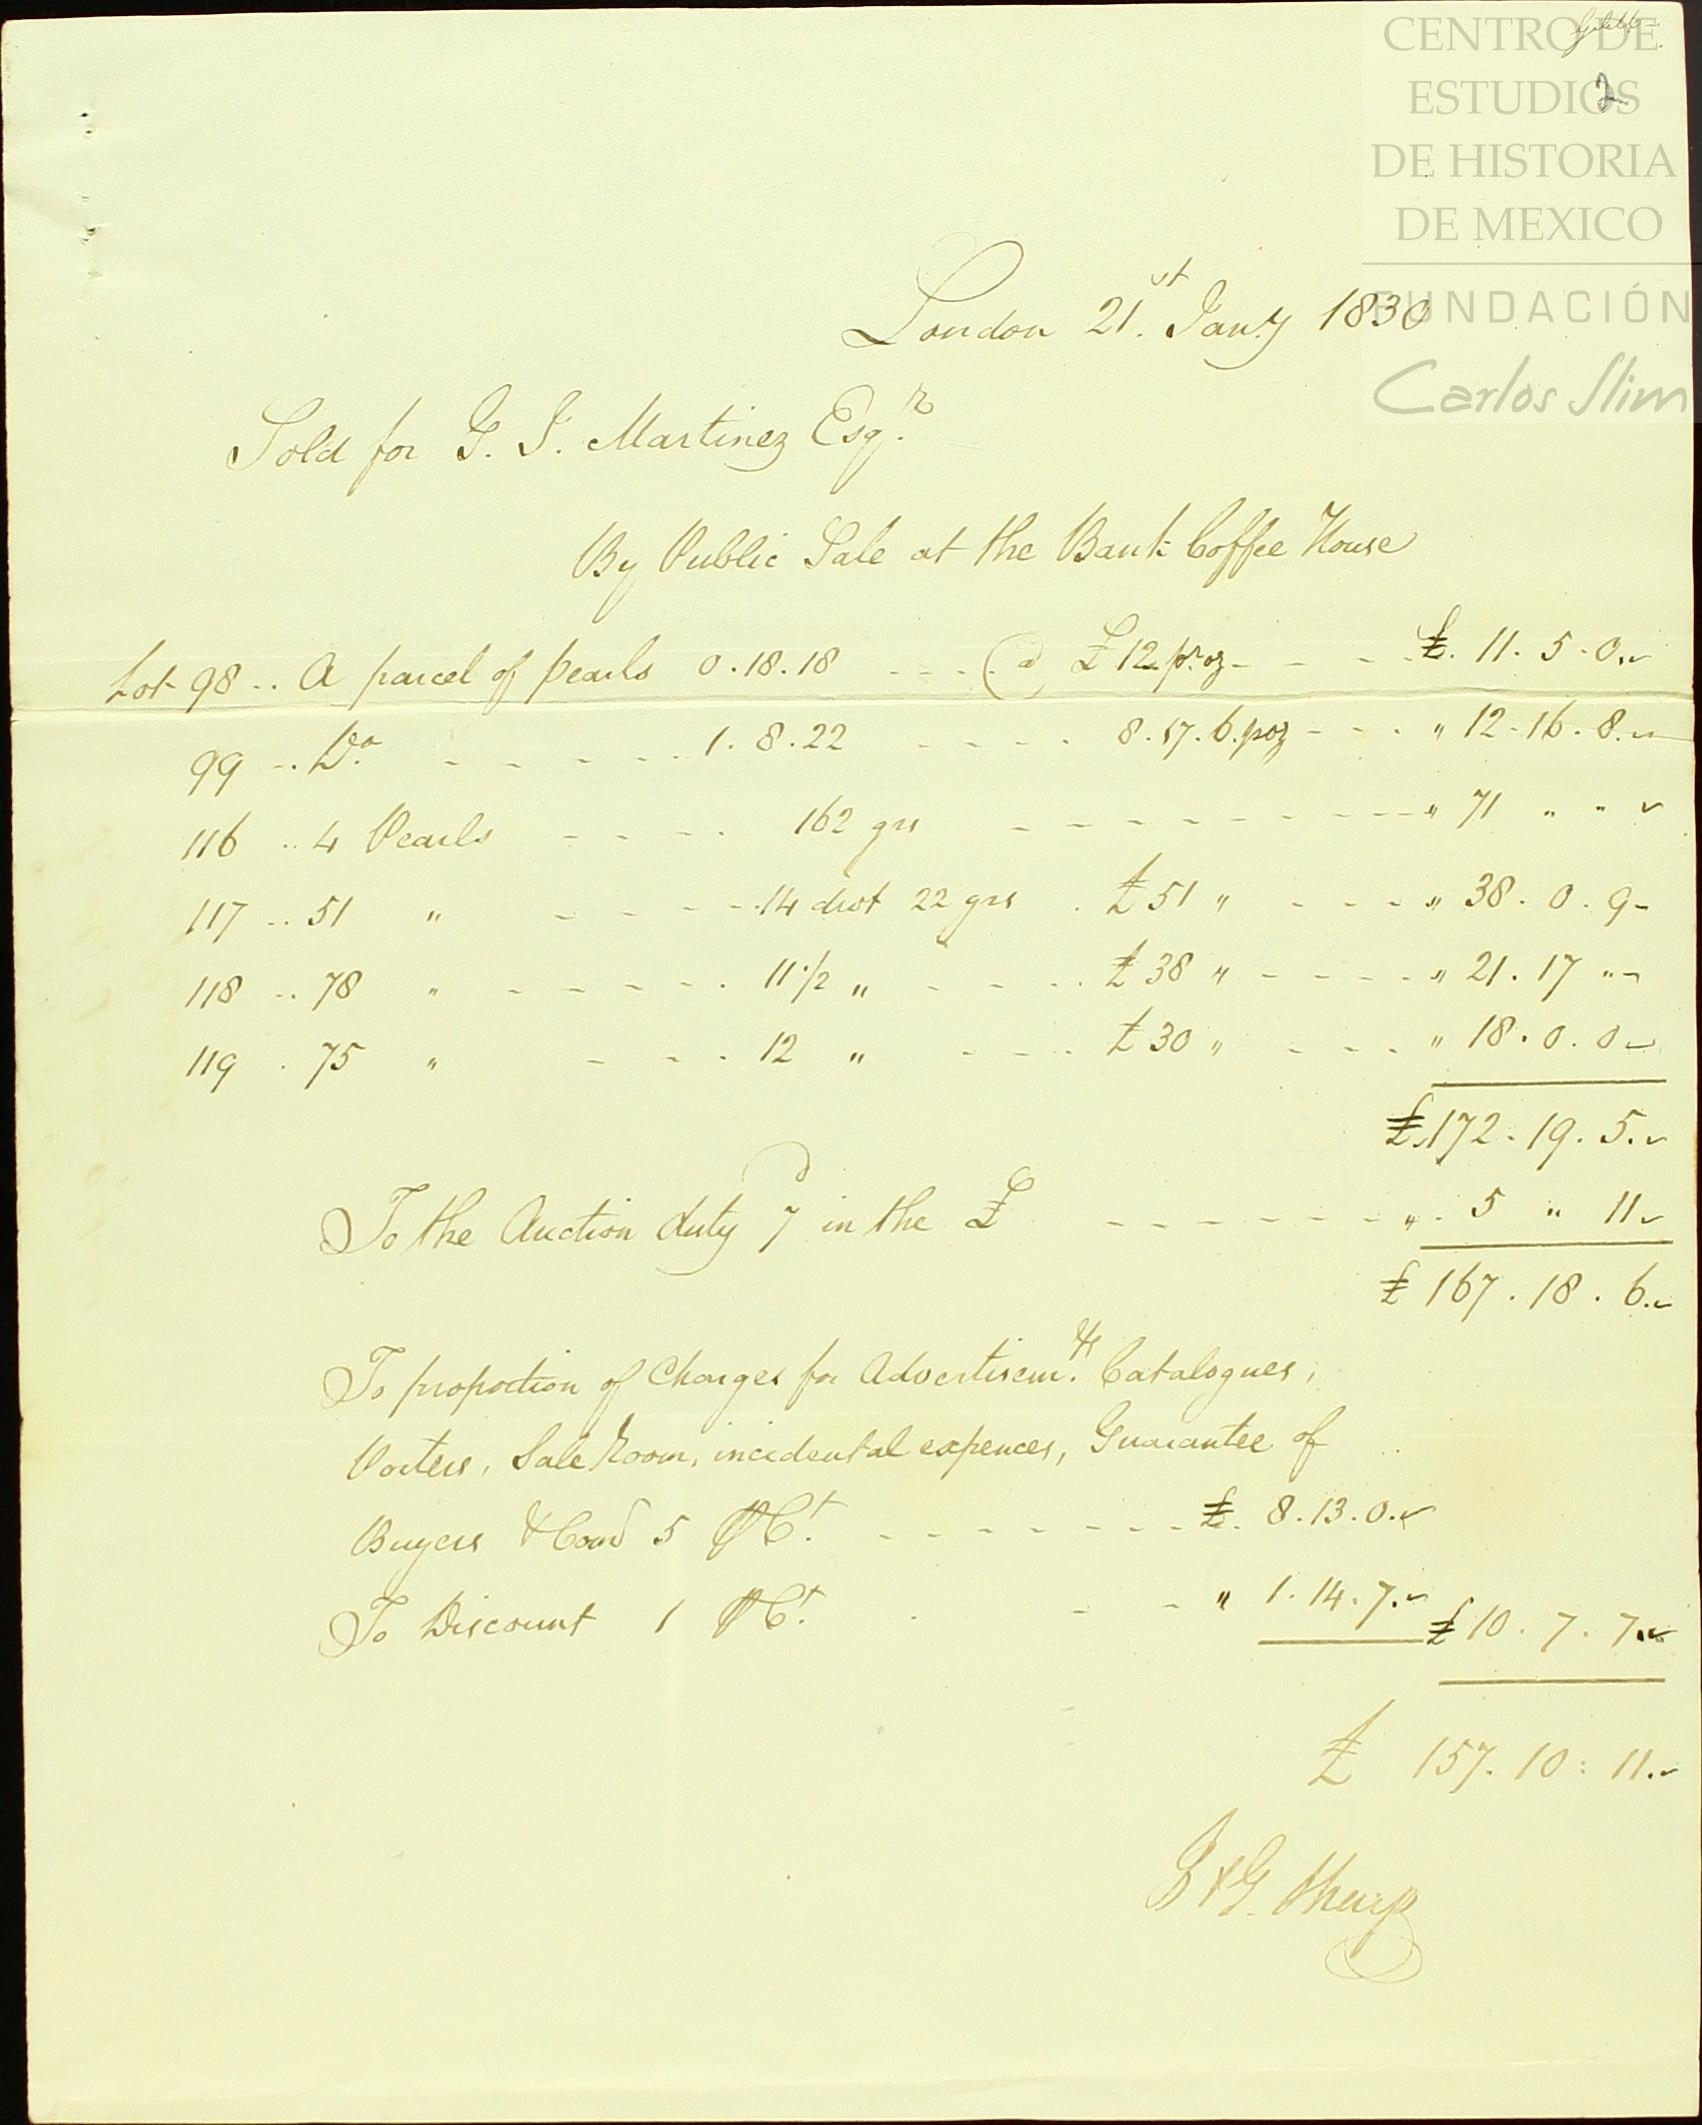 CENTRO DE
ESTUDIOS
DE HISTORIA
DE MEXICO
FUNDACIÓN
Carlos Slim
2
London 21.st Jany 1830
Sold for G. I. Martinez Esq.r
By Public Sale at the Bank Coffee House
Lot 98 .. A parcel of pearls 0.18.18 - - - @ £12 pr oz - - - £. 11. 5. 0.
99 .. Do. - - - - - 1. 8. 22 - - - - 8. 17. 6. p oz - - - " 12. 16. 8.
116 .. 4 Pearls - - - - 162 grs - - - - - - - - " 71 " "
117 .. 51 " - - - - 14 dwt 22 grs . £51 " - - - " 38. 0. 9
118 .. 78 " - - - - - 11 1/2 " - - - £38 " - - - - " 21. 17 "
119 . 75 " - - - 12 " - - - £30 " - - - " 18. 0. 0
£172. 19. 5.
To the Auction duty 7d in the £ - - - - - - - " 5 " 11
£ 167. 18. 6.
To proportion of Charges for Advertisem.ts Catalogues,
Porters, Sale Room, incidental expences, Guarantee of
Buyers & Comd 5 P Ct. - - - - - - - £. 8. 13. 0.
To Discount 1 P Ct. - - - " 1. 14. 7. £10. 7. 7.
£ 157. 10: 11.
& G. Sharp